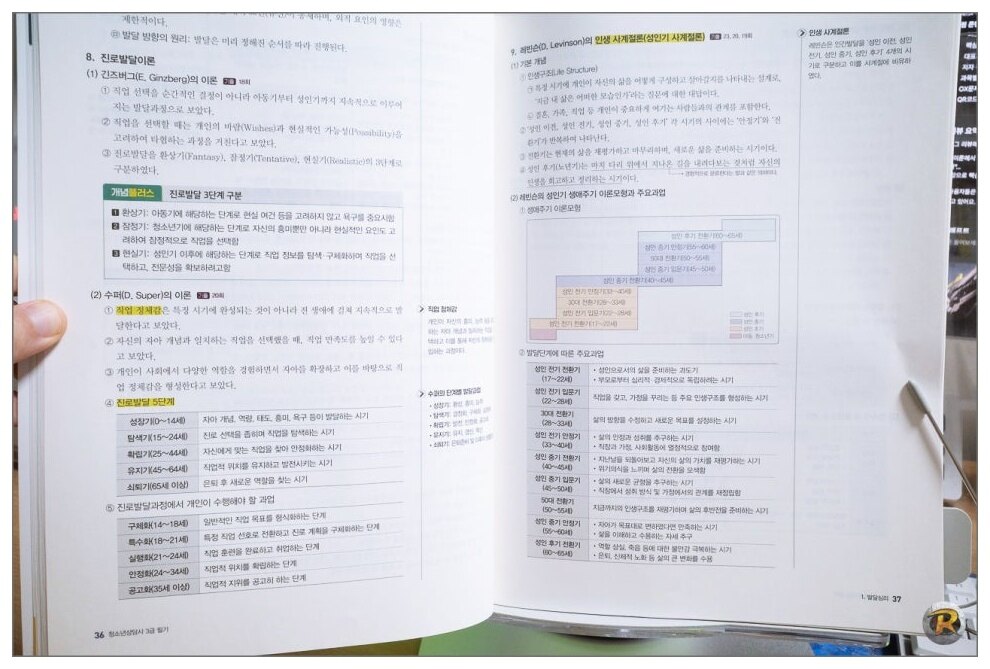 제한적이다.
⑩ 발달 방향의 원리: 발달은 미리 정해진 순서를 따라 진행된다.
8. 진로발달이론
(1) 긴즈버그(E. Ginzberg)의 이론 기출 18회
① 직업 선택을 순간적인 결정이 아니라 아동기부터 성인기까지 지속적으로 이루어
지는 발달과정으로 보았다.
② 직업을 선택할 때는 개인의 바람(Wishes)과 현실적인 가능성(Possibility)을
고려하여 타협하는 과정을 거친다고 보았다.
③ 진로발달을 환상기(Fantasy), 잠정기(Tentative), 현실기(Realistic)의 3단계로
구분하였다.
개념플러스 진로발달 3단계 구분
1 환상기: 아동기에 해당하는 단계로 현실 여건 등을 고려하지 않고 욕구를 중요시함
2 잠정기: 청소년기에 해당하는 단계로 자신의 흥미뿐만 아니라 현실적인 요인도 고
려하여 잠정적으로 직업을 선택함
3 현실기: 성인기 이후에 해당하는 단계로 직업 정보를 탐색·구체화하며 직업을 선
택하고, 전문성을 확보하려고함
(2) 수퍼(D. Super)의 이론 기출 20회
① 직업 정체감은 특정 시기에 완성되는 것이 아니라 전 생애에 걸쳐 지속적으로 발
달한다고 보았다.
② 자신의 자아 개념과 일치하는 직업을 선택했을 때, 직업 만족도를 높일 수 있다
고 보았다.
③ 개인이 사회에서 다양한 역할을 경험하면서 자아를 확장하고 이를 바탕으로 직
업 정체감을 형성한다고 보았다.
④ 진로발달 5단계
성장기(0~14세) 자아 개념, 역량, 태도, 흥미, 욕구 등이 발달하는 시기
탐색기(15~24세) 진로 선택을 좁히며 직업을 탐색하는 시기
확립기(25~44세) 자신에게 맞는 직업을 찾아 안정화하는 시기
유지기(45~64세) 직업적 위치를 유지하고 발전시키는 시기
쇠퇴기(65세 이상) 은퇴 후 새로운 역할을 찾는 시기
⑤ 진로발달과정에서 개인이 수행해야 할 과업
구체화(14~18세) 일반적인 직업 목표를 형식화하는 단계
특수화(18~21세) 특정 직업 선호로 전환하고 진로 계획을 구체화하는 단계
실행화(21~24세) 직업 훈련을 완료하고 취업하는 단계
안정화(24~34세) 직업적 위치를 확립하는 단계
공고화(35세 이상) 직업적 지위를 공고히 하는 단계
직업 정체감
수퍼의 단계별 발달과업
36 청소년상담사 3급 필기
9. 레빈슨(D. Levinson)의 인생 사계절론(성인기 사계절론) 기출 23, 20, 19회
(1) 기본 개념
① 인생구조(Life Structure)
㉠ 특정 시기에 개인이 자신의 삶을 어떻게 구성하고 살아갈지를 나타내는 설계로,
'지금 내 삶은 어떠한 모습인가'라는 질문에 대한 대답이다.
㉡ 결혼, 가족, 직업 등 개인이 중요하게 여기는 사람들과의 관계를 포함한다.
② '성인 이전, 성인 전기, 성인 중기, 성인 후기' 각 시기의 사이에는 '안정기'와 '전
환기'가 반복하여 나타난다.
③ 전환기는 현재의 삶을 재평가하고 마무리하며, 새로운 삶을 준비하는 시기이다.
④ 성인 후기(노년기)는 마치 다리 위에서 지나온 길을 내려다보는 것처럼 자신의
인생을 회고하고 정리하는 시기이다.
(2) 레빈슨의 성인기 생애주기 이론모형과 주요과업
① 생애주기 이론모형
성인 후기 전환기(60~65세)
성인 중기 안정기(55~60세)
50대 전환기(50~55세)
성인 중기 입문기(45~50세)
성인 중기 전환기(40~45세)
성인 전기 안정기(33~40세)
30대 전환기(28~33세)
성인 전기 입문기(22~28세)
성인 전기 전환기(17~22세)
② 발달단계에 따른 주요과업
성인 전기 전환기
(17~22세)
• 성인으로서의 삶을 준비하는 과도기
• 부모로부터 심리적·경제적으로 독립하려는 시기
성인 전기 입문기
(22~28세)
직업을 갖고, 가정을 꾸리는 등 주요 인생구조를 형성하는 시기
30대 전환기
(28~33세)
삶의 방향을 수정하고 새로운 목표를 설정하는 시기
성인 전기 안정기
(33~40세)
• 삶의 안정과 성취를 추구하는 시기
• 직장과 가정, 사회활동에 열정적으로 참여함
성인 중기 전환기
(40~45세)
• 지난날을 되돌아보고 자신의 삶의 가치를 재평가하는 시기
• 위기의식을 느끼며 삶의 전환을 모색함
성인 중기 입문기
(45~50세)
• 삶의 새로운 균형을 추구하는 시기
• 직장에서 성취 방식 및 가정에서의 관계를 재정립함
50대 전환기
(50~55세)
지금까지의 인생구조를 재평가하며 삶의 후반전을 준비하는 시기
성인 중기 안정기
(55~60세)
• 자아가 목표대로 변하였다면 만족하는 시기
• 삶을 이해하고 수용하는 자세 추구
성인 후기 전환기
(60~65세)
• 역할 상실, 죽음 등에 대한 불안감 극복하는 시기
• 은퇴, 신체적 노화 등 삶의 큰 변화를 수용
인생 사계절론
레빈슨은 인간발달을 '성인 이전, 성인
전기, 성인 중기, 성인 후기' 4개의 시
기로 구분하고 이를 사계절에 비유하
였다.
1. 발달심리 37
R